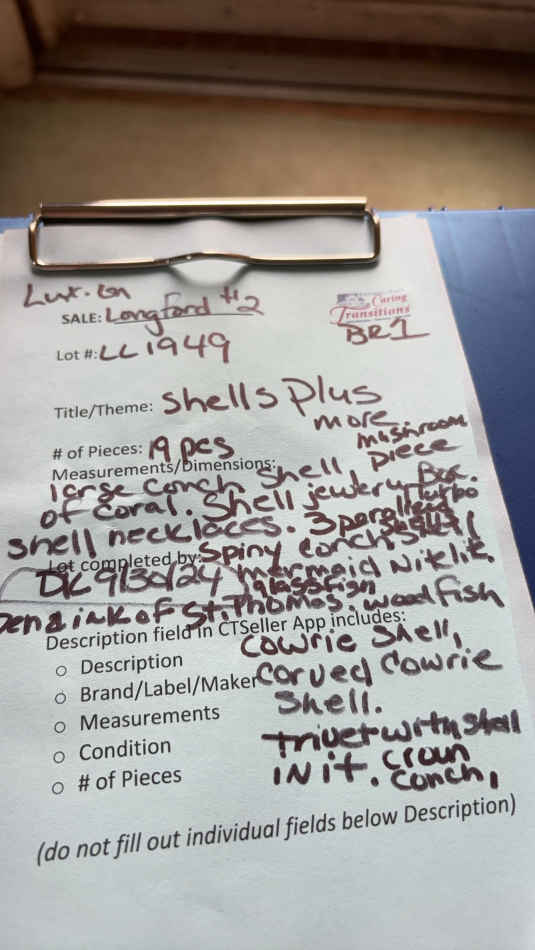 SALE: Longford #2
Caring
Transitions
BR1
Lot #: LL1949
Title/Theme: Shells Plus
more
# of Pieces: 19 pcs
mushroom
Measurements/Dimensions:
piece
large conch shell,
of coral. Shell jewelry Box.
shell necklaces. 3
Turbo
Spiny conch,
Lot completed by:
DK 9/30/24 mermaid
glass fish
Pen & ink of St. Thomas. wood fish
Description field in CTSeller App includes:
cowrie shell,
○ Description
○ Brand/Label/Maker
carved cowrie
shell.
○ Measurements
trivet with shell
○ Condition
in it. croun
conch,
○ # of Pieces
(do not fill out individual fields below Description)